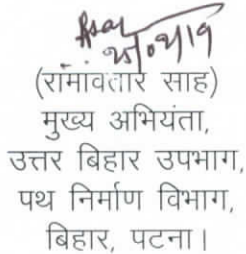 (रामांवतार साह)
मुख्य अभियंता,
उत्तर बिहार उपभाग,
पथ निर्माण विभाग,
बिहार, पटना।